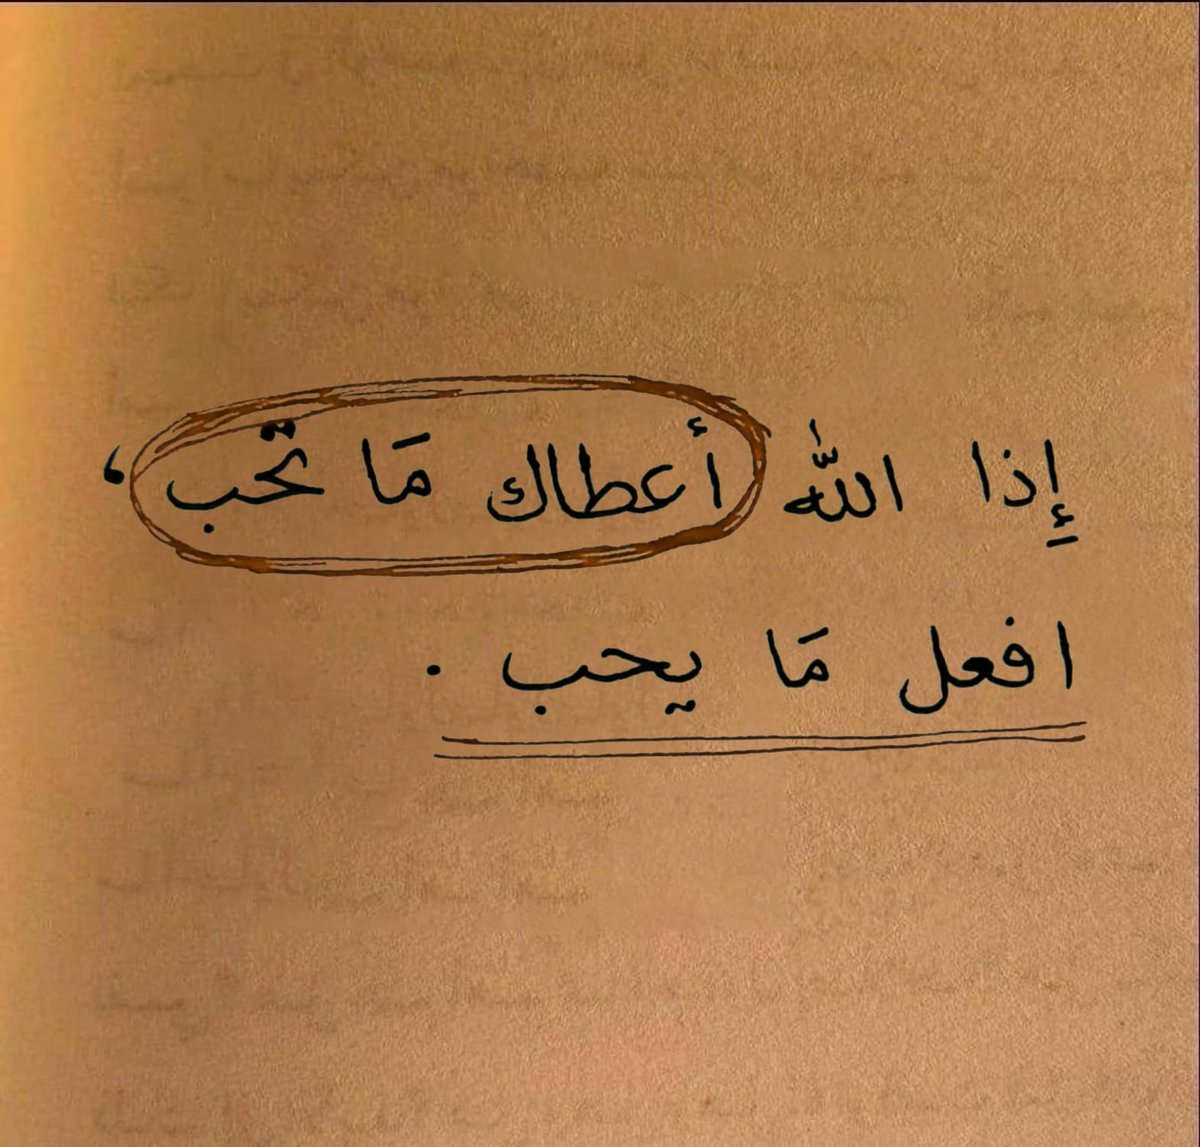 إِذا اللّٰه أعطاك مَا تحّب ،
افعل مَا يحب .